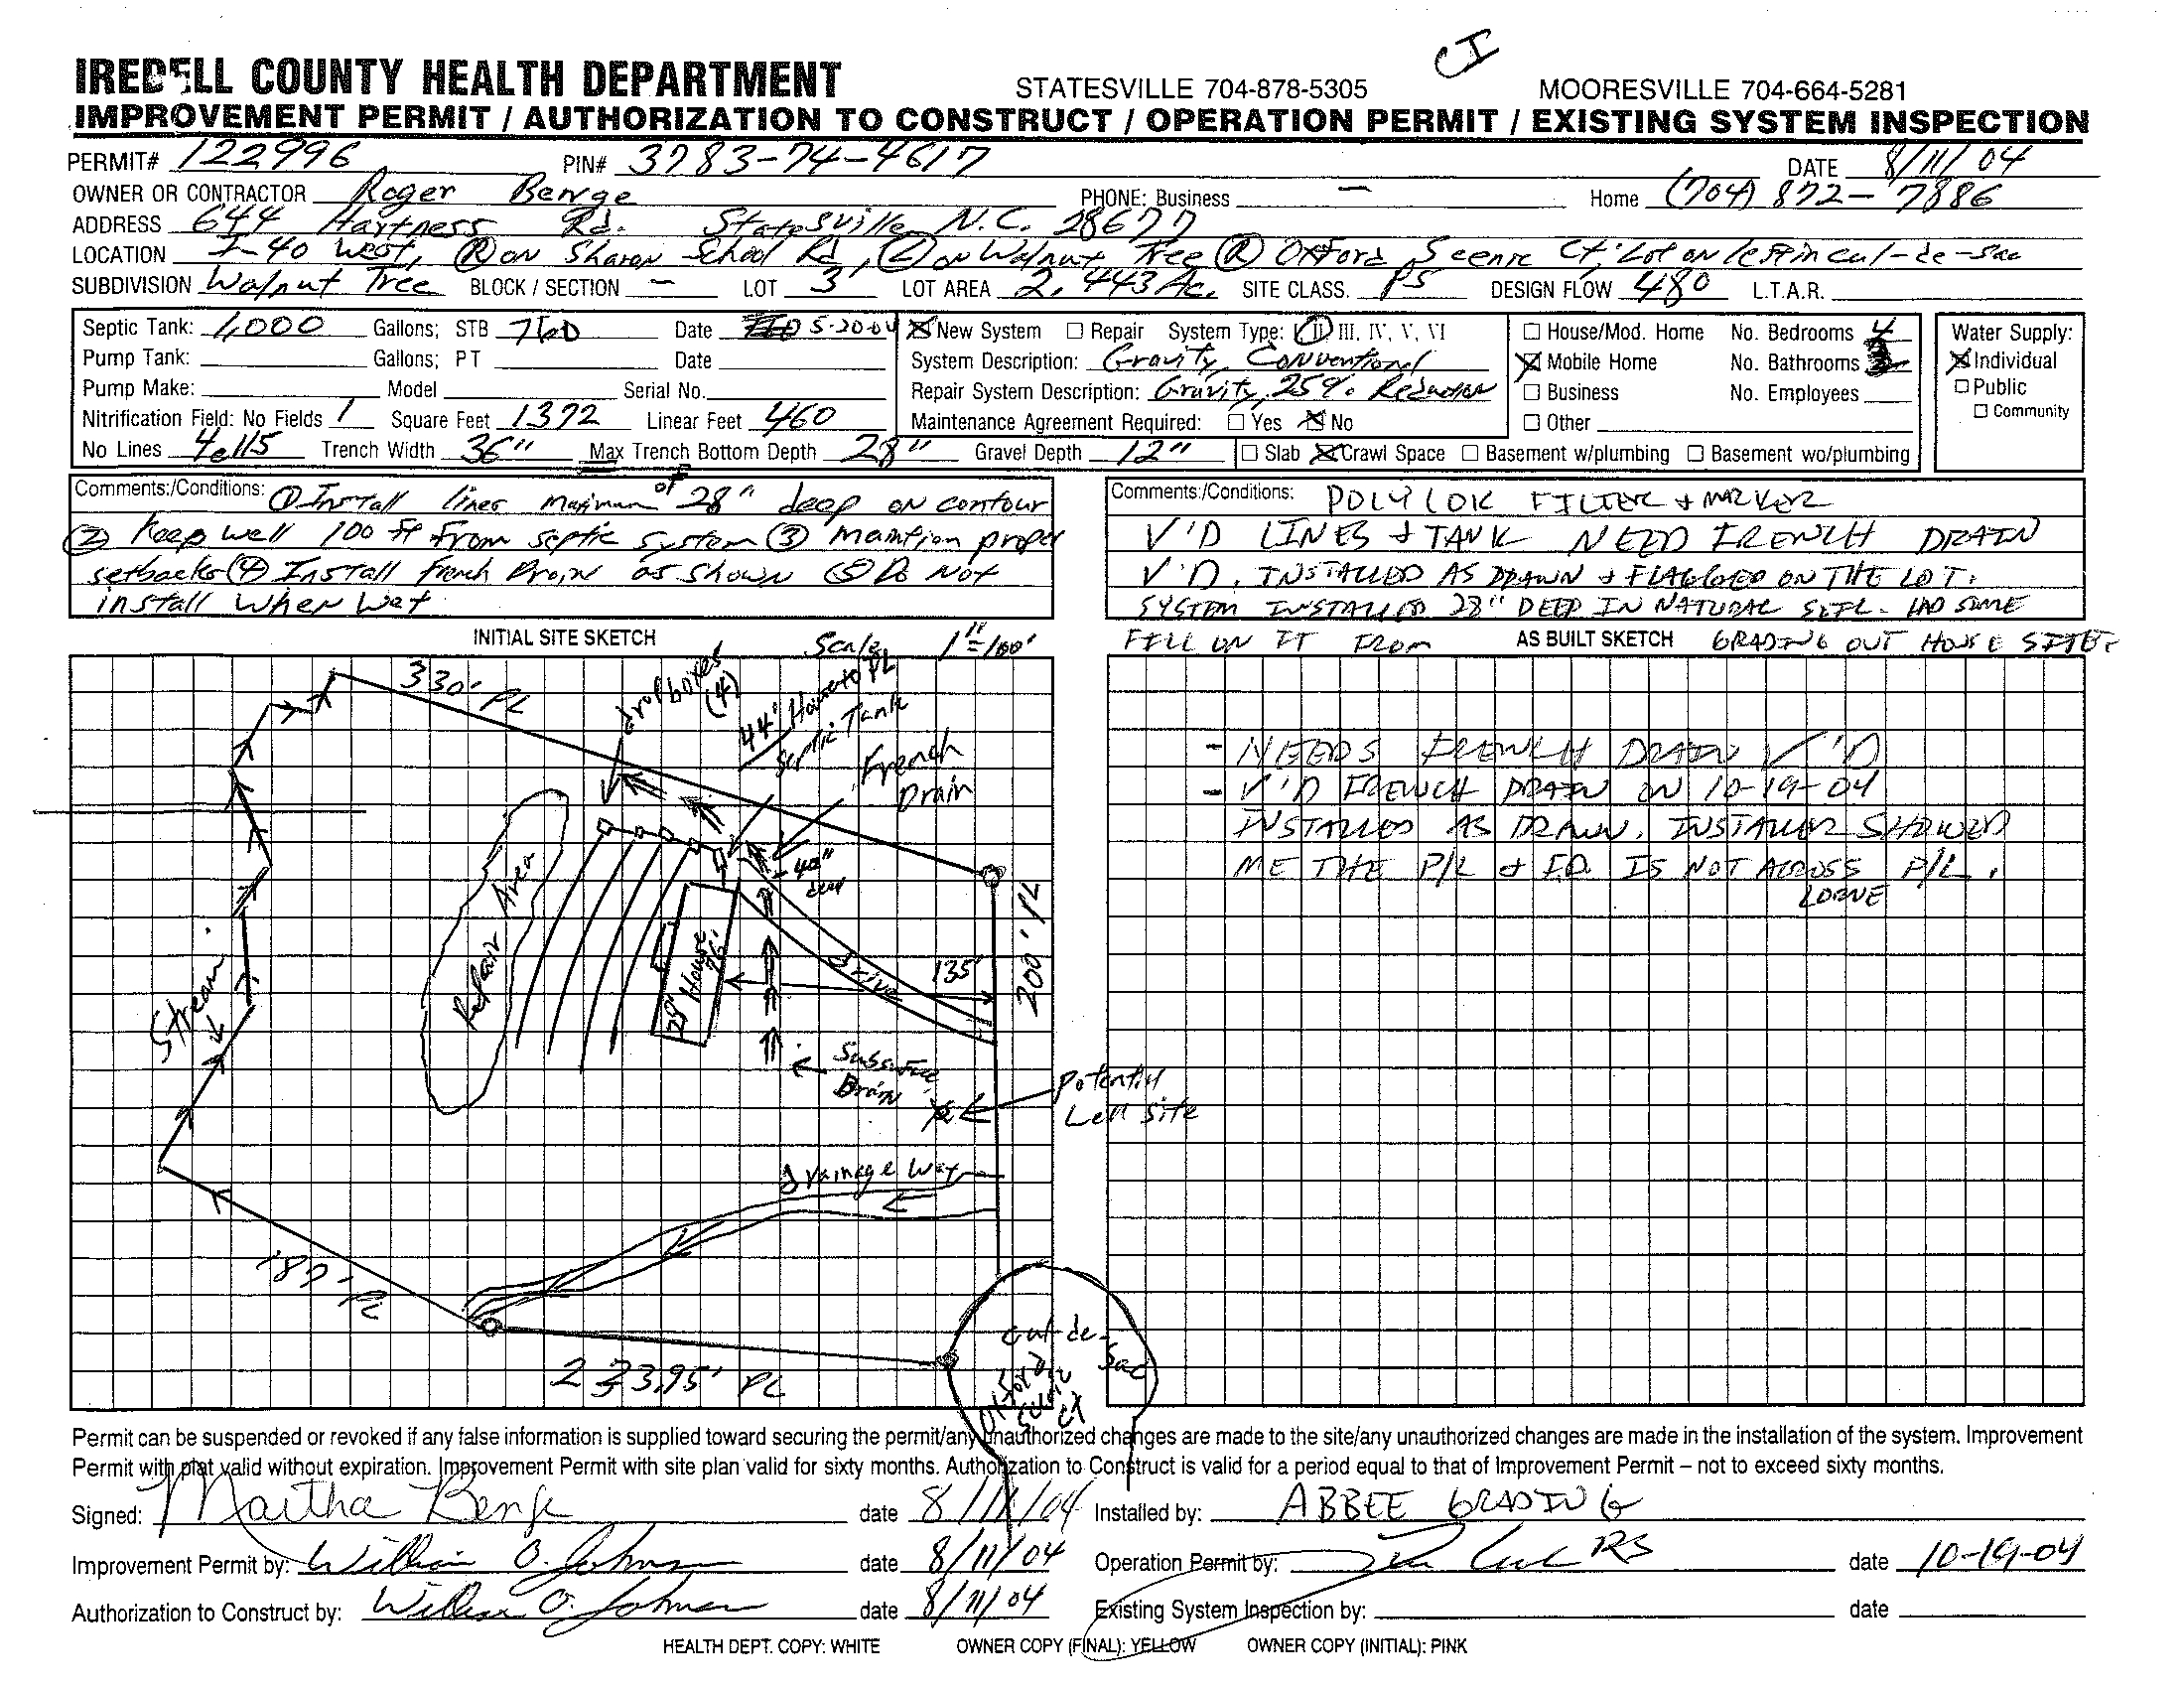 CI
IREDELL COUNTY HEALTH DEPARTMENT STATESVILLE 704-878-5305 MOORESVILLE 704-664-5281
IMPROVEMENT PERMIT / AUTHORIZATION TO CONSTRUCT / OPERATION PERMIT / EXISTING SYSTEM INSPECTION
PERMIT# 122996 PIN# 3783-74-4617 DATE 8/11/04
OWNER OR CONTRACTOR Roger Benge PHONE: Business — Home (704) 872-7886
ADDRESS 644 Hartness Rd. Statesville N.C. 28677
LOCATION I-40 West, (R) on Sharon School Rd, (L) on Walnut Tree (R) Oxford Scenic Ct, Lot on left in cul-de-sac
SUBDIVISION Walnut Tree BLOCK / SECTION — LOT 3 LOT AREA 2.443 Ac. SITE CLASS. PS DESIGN FLOW 480 L.T.A.R.
Septic Tank: 1,000 Gallons; STB 760 Date 5-20-04 New System Repair System Type: I, II, III, IV, V, VI House/Mod. Home No. Bedrooms 4 Water Supply:
Pump Tank: Gallons; PT Date System Description: Gravity, Conventional Mobile Home No. Bathrooms Individual
Pump Make: Model Serial No. Repair System Description: Gravity, 25% Reduction Business No. Employees Public
Nitrification Field: No Fields 1 Square Feet 1372 Linear Feet 460 Maintenance Agreement Required: Yes No Other Community
No Lines 4@115 Trench Width 36" Max Trench Bottom Depth 28" Gravel Depth 12" Slab Crawl Space Basement w/plumbing Basement wo/plumbing
Comments:/Conditions: (1) Install lines maximum of 28" deep on contour
(2) Keep well 100 ft from septic system (3) Maintion proper
setbacks (4) Install french Drain as shown (5) Do Not
install when wet
Comments:/Conditions: POLYLOK FILTER + MARKER
V'D LINES + TANK NEED FRENCH DRAIN
V'D. INSTALLED AS DRAWN + FLAGGED ON THE LOT.
SYSTEM INSTALLED 28" DEEP IN NATURAL SOIL. HAD SOME
FILL ON IT FROM GRADING OUT HOUSE SITE
INITIAL SITE SKETCH Scale 1"=100'
AS BUILT SKETCH
330' PL
drop boxes (4)
44' House to PL
Septic Tank
French Drain
40" deep
Repair Area
House
28'
76'
Drive
135'
200' PL
Stream
Subsurface Drain
Potential Well Site
Drainage Way
PL
223.95' PL
Cul-de-Sac
Oxford Scenic Ct
- NEEDS FRENCH DRAIN V'D
- V'D FRENCH DRAIN ON 10-19-04
INSTALLED AS DRAWN. INSTALLER SHOWED
ME THE P/L + F.D. IS NOT ACROSS P/L.
Permit can be suspended or revoked if any false information is supplied toward securing the permit/any unauthorized changes are made to the site/any unauthorized changes are made in the installation of the system. Improvement
Permit with plat valid without expiration. Improvement Permit with site plan valid for sixty months. Authorization to Construct is valid for a period equal to that of Improvement Permit – not to exceed sixty months.
Signed: Martha Benge date 8/11/04 Installed by: ABBEE GRADING
Improvement Permit by: William O. Johnson date 8/11/04 Operation Permit by: RS date 10-19-04
Authorization to Construct by: William O. Johnson date 8/11/04 Existing System Inspection by: date
HEALTH DEPT. COPY: WHITE OWNER COPY (FINAL): YELLOW OWNER COPY (INITIAL): PINK